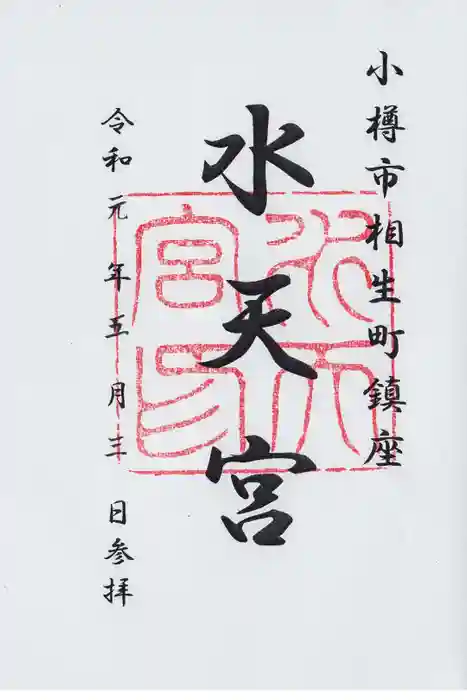 小樽市相生町鎮座
水天宮
令和元年五月三日参拝
水天宮印